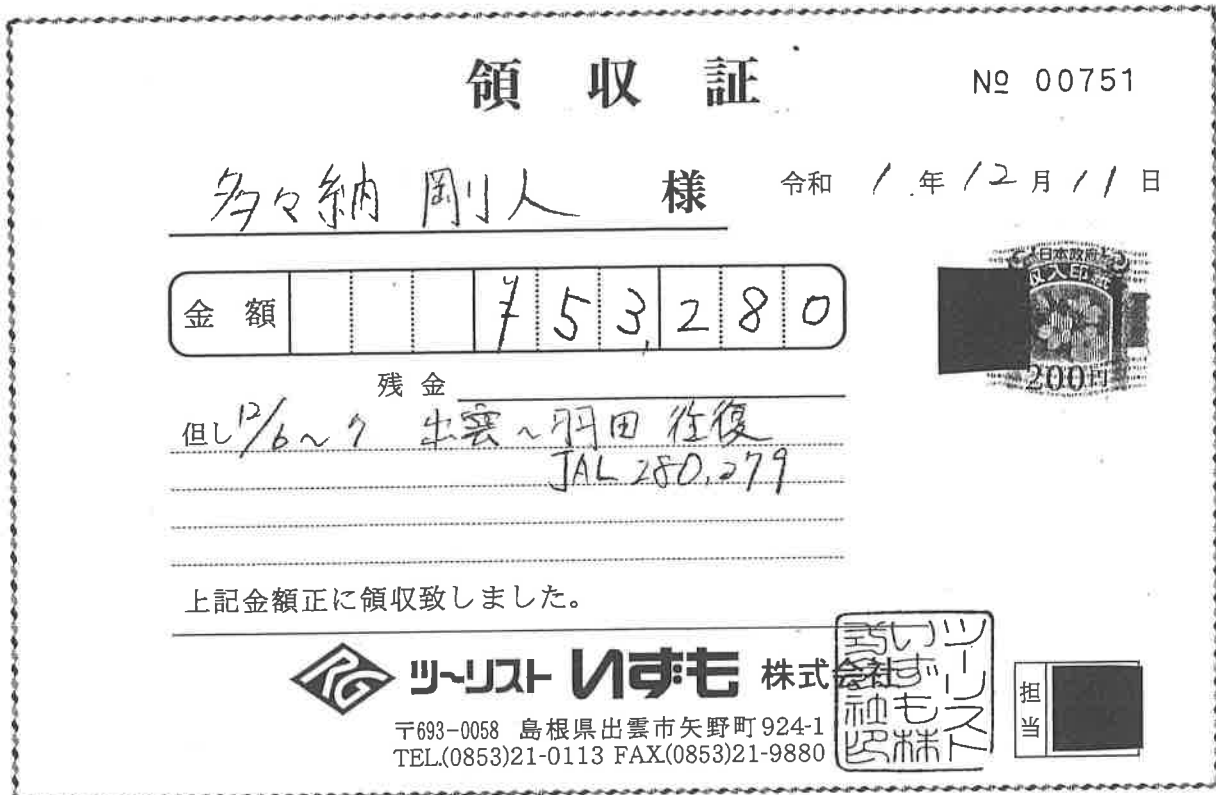 領収証
№ 00751
多々納 剛人 様
令和 1年12月11日
金額 ¥53,280
日本政府
収入印紙
200円
残金
但し 12/6~7 出雲~羽田 往復
JAL 280,279
上記金額正に領収致しました。
RG ツ~リスト いずも 株式会社
〒693-0058 島根県出雲市矢野町924-1
TEL.(0853)21-0113 FAX.(0853)21-9880
ツーリスト
いずも株
式会社印
担当